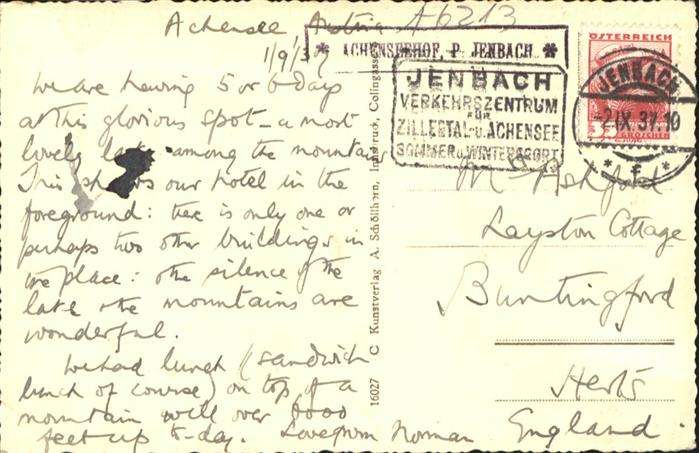 Achensee Austria A6213
1/9/37
* ACHENSEEHOF, P. JENBACH *
We are having 5 or 6 days
at this glorious spot - a most
lovely lake among the mountains
This shows our hotel in the
foreground: there is only one or
perhaps two other buildings in
the place: the silence of the
lake & the mountains are
wonderful.
We had lunch (sandwich
lunch of course) on top of a
mountain well over 6000
feet up to-day. Love from Norman
16027 C Kunstverlag A. Schöllhorn, Innsbruck, Colingasse
JENBACH
VERKEHRSZENTRUM
FÜR
ZILLERTAL-U. ACHENSEE
SOMMER u. WINTERSPORT
ÖSTERREICH
GROSCHEN
JENBACH
-2.IX.37.10
* f *
Mrs Ashford
Layston Cottage
Buntingford
Herts
England.